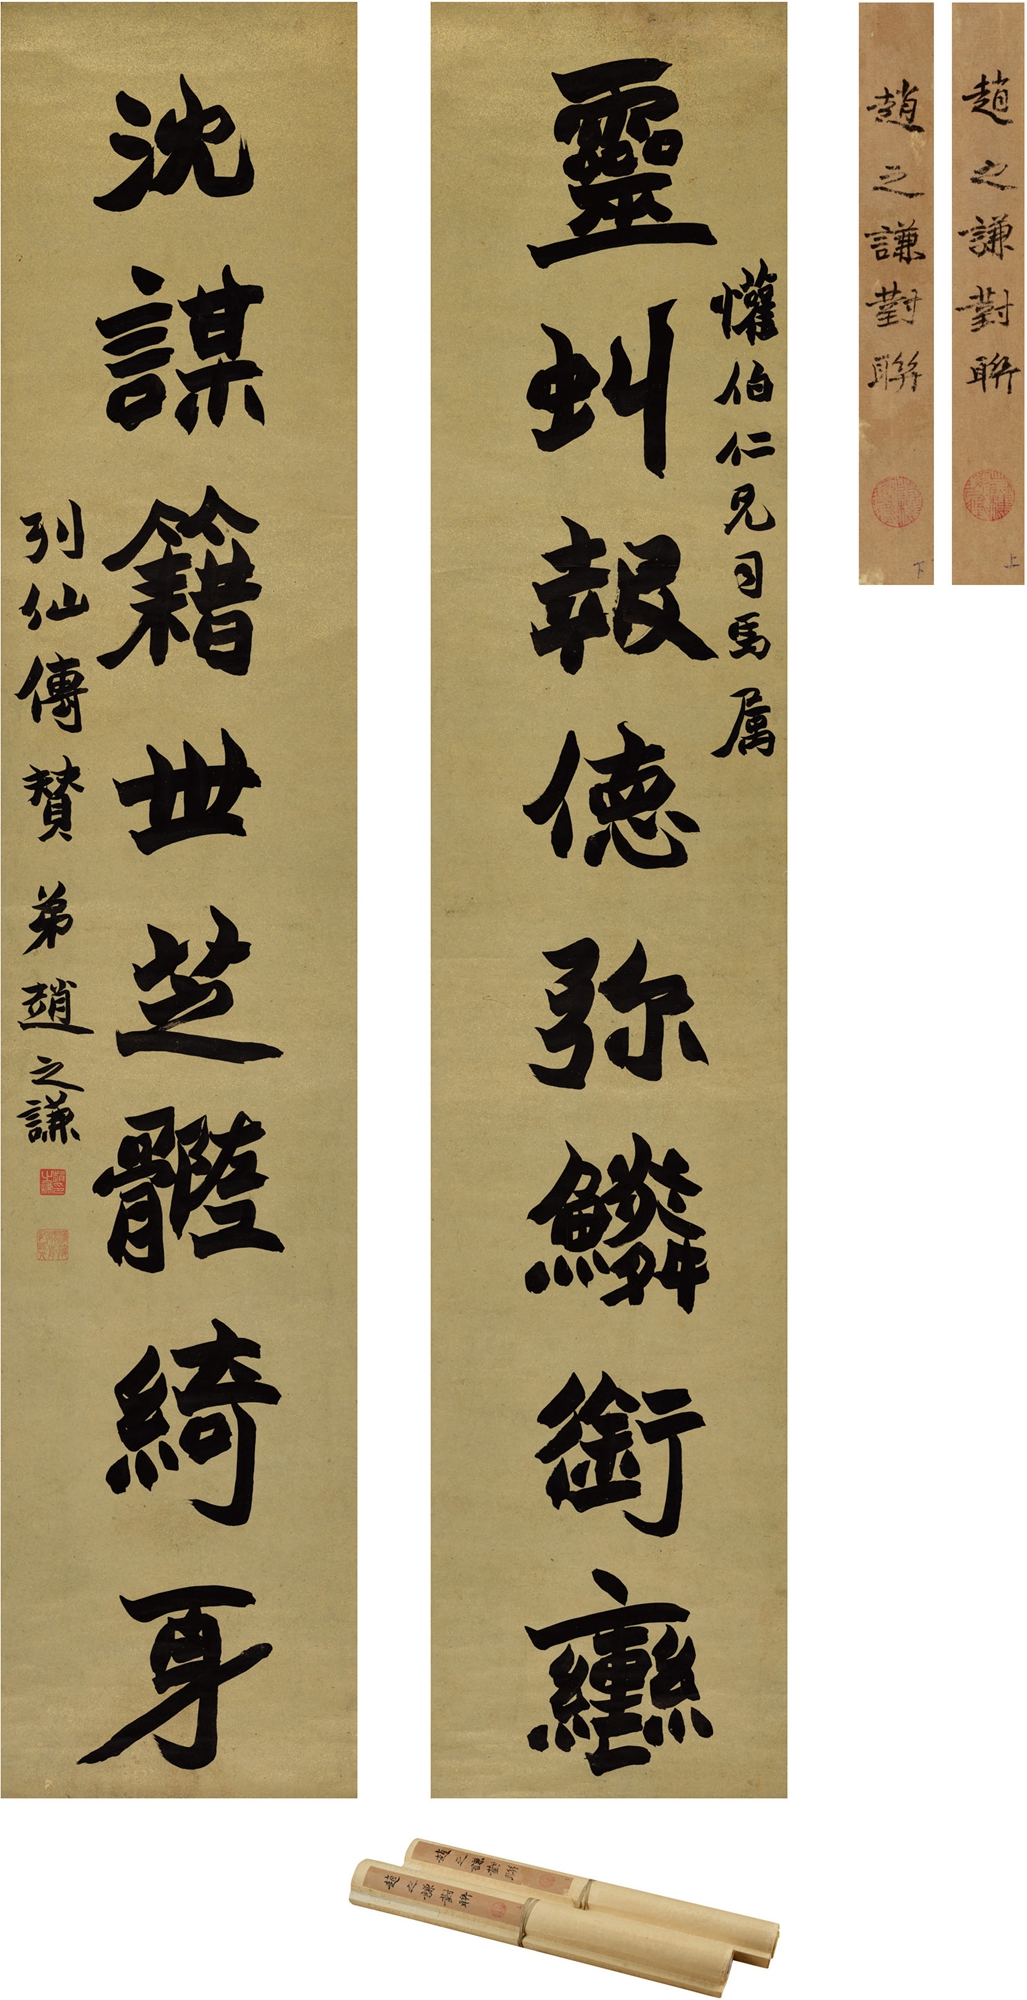 靈虯報德弥鱗銜轡
懽伯仁兄司馬属
沈謀籍世芝體綺身
列仙傳贊 弟趙之謙
趙之謙對聯
上
趙之謙對聯
下
趙之謙對聯
趙之謙對聯